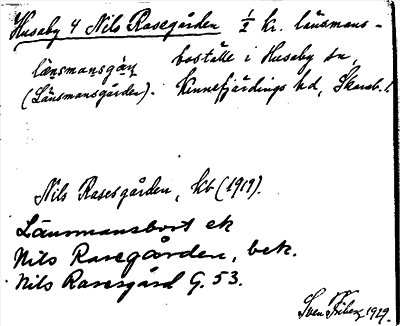 Husaby 4 Nils Rasegården ½ kr. länsmans-
länsmansgåɹɹ boställe i Husaby sn,
(Länsmansgården). Kinnefjärdings hd, Skarab. l.
Nils Rasesgården, kb (1919).
Länsmansbost ek
Nils Rasegården, bek.
Nils Rasesgård G. 53.
Sven Friberg 1919.